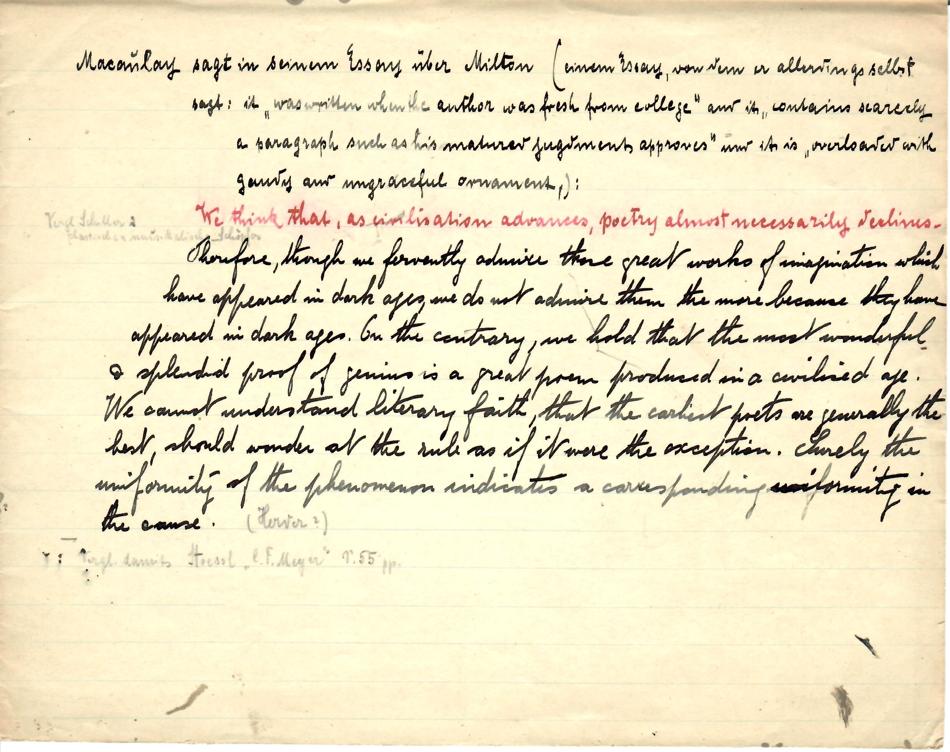 Macaulay sagt in seinem Essay über Milton (einem Essay, von dem er allerdings selbst
sagt: it „was written when the author was fresh from college" und it „contains scarcely
a paragraph such as his matured jugdment approves" und it is „overloaded with
gaudy and ungraceful ornament„):
We think that, as civilisation advances, poetry almost necessarily declines.
Vergl. Schiller
Therefore, though we fervently admire those great works of imagination which
have appeared in dark ages, we do not admire them the more because they have
appeared in dark ages. On the contrary, we hold that the most wonderful
& splendid proof of genius is a great poem produced in a civilised age.
We cannot understand literary faith, that the earliest poets are generally the
best, should wonder at the rule as if it were the exception. Surely the
uniformity of the phenomenon indicates a corresponding uniformity in
the cause. (Herder?)
Vergl. damits Stoessl „C. F. Meyer" S. 55 pp.